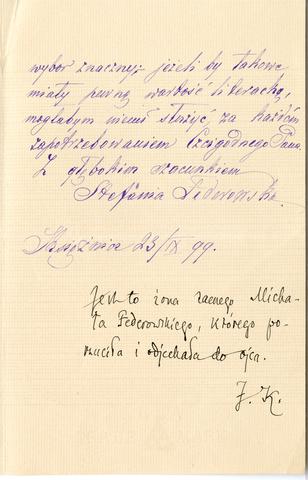 wybór znaczny; jeżeli by takowe
miały pewną wartość literacką,
mogłabym niemi służyć za każdém
zapotrzebowaniem Czcigodnego Pana.
Z głębokim szacunkiem
Stefania Federowska
23/IX 99.
Jest to żona zacnego Micha-
ła Federowskiego, którego po-
rzuciła i odjechała do ojca.
J. K.